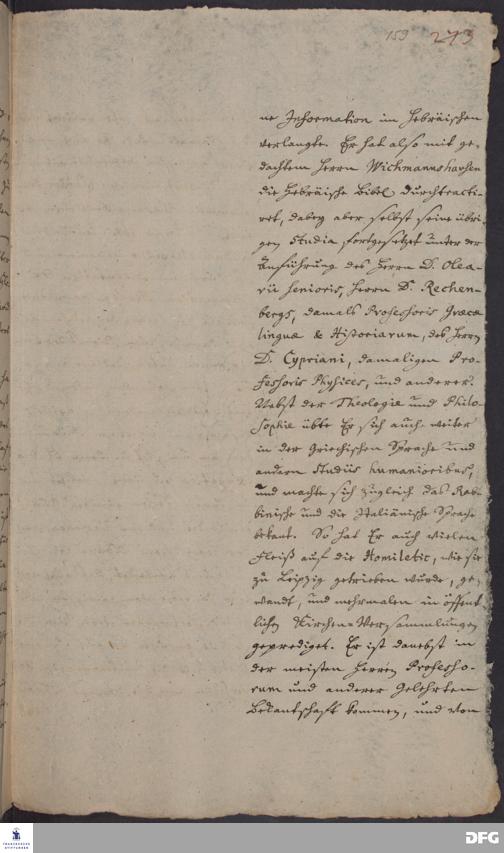 159 273
ne Information im Hebräischen
verlangte. Er hat also mit ge-
dachtem Herrn Wichmannshausen
die Hebräische Bibel durchtracti-
ret, dabey aber selbst seine übri-
gen Studia fortgesetzet unter der
Anführung des Herrn D. Olea-
rii Senioris, Herrn D. Rechen-
bergs, damals Professoris Græcæ
linguæ & Historiarum, des Herrn
D. Cypriani, damaligen Pro-
fessoris Physices, und anderer.
Nebst der Theologie und Philo-
sophie übte Er sich auch weiter
in der Griechischen Sprache und
andern Studiis humanioribus,
und machte sich zugleich das Rab-
binische und die Italiänische Sprache
bekant. So hat Er auch vielen
Fleiß auf die Homiletic, wie sie
zu Leipzig getrieben wurde, ge-
wandt, und mehrmalen in öffent
lichen Kirchen-Versammlungen
geprediget. Er ist danebst in
der meisten Herren Professo-
rum und anderer Gelehrten
Bekantschaft kommen, und von
FRANCKESCHE STIFTUNGEN
DFG